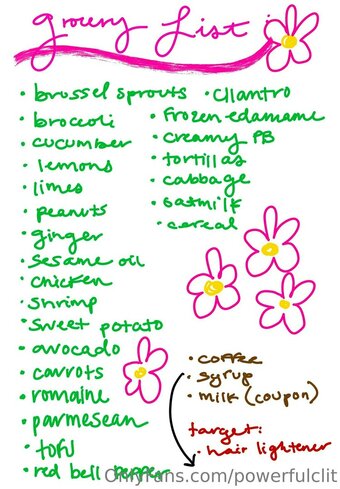 grocery List :
• brussel sprouts
• broccoli
• cucumber
• lemons
• limes
• peanuts
• ginger
• sesame oil
• chicken
• shrimp
• sweet potato
• avocado
• carrots
• romaine
• parmesean
• tofu
• red bell pepper
• cilantro
• frozen edamame
• creamy PB
• tortillas
• cabbage
• oatmilk
• cereal
• coffee
• syrup
• milk (coupon)
target:
• hair lightener
OnlyFans.com/powerfulclit